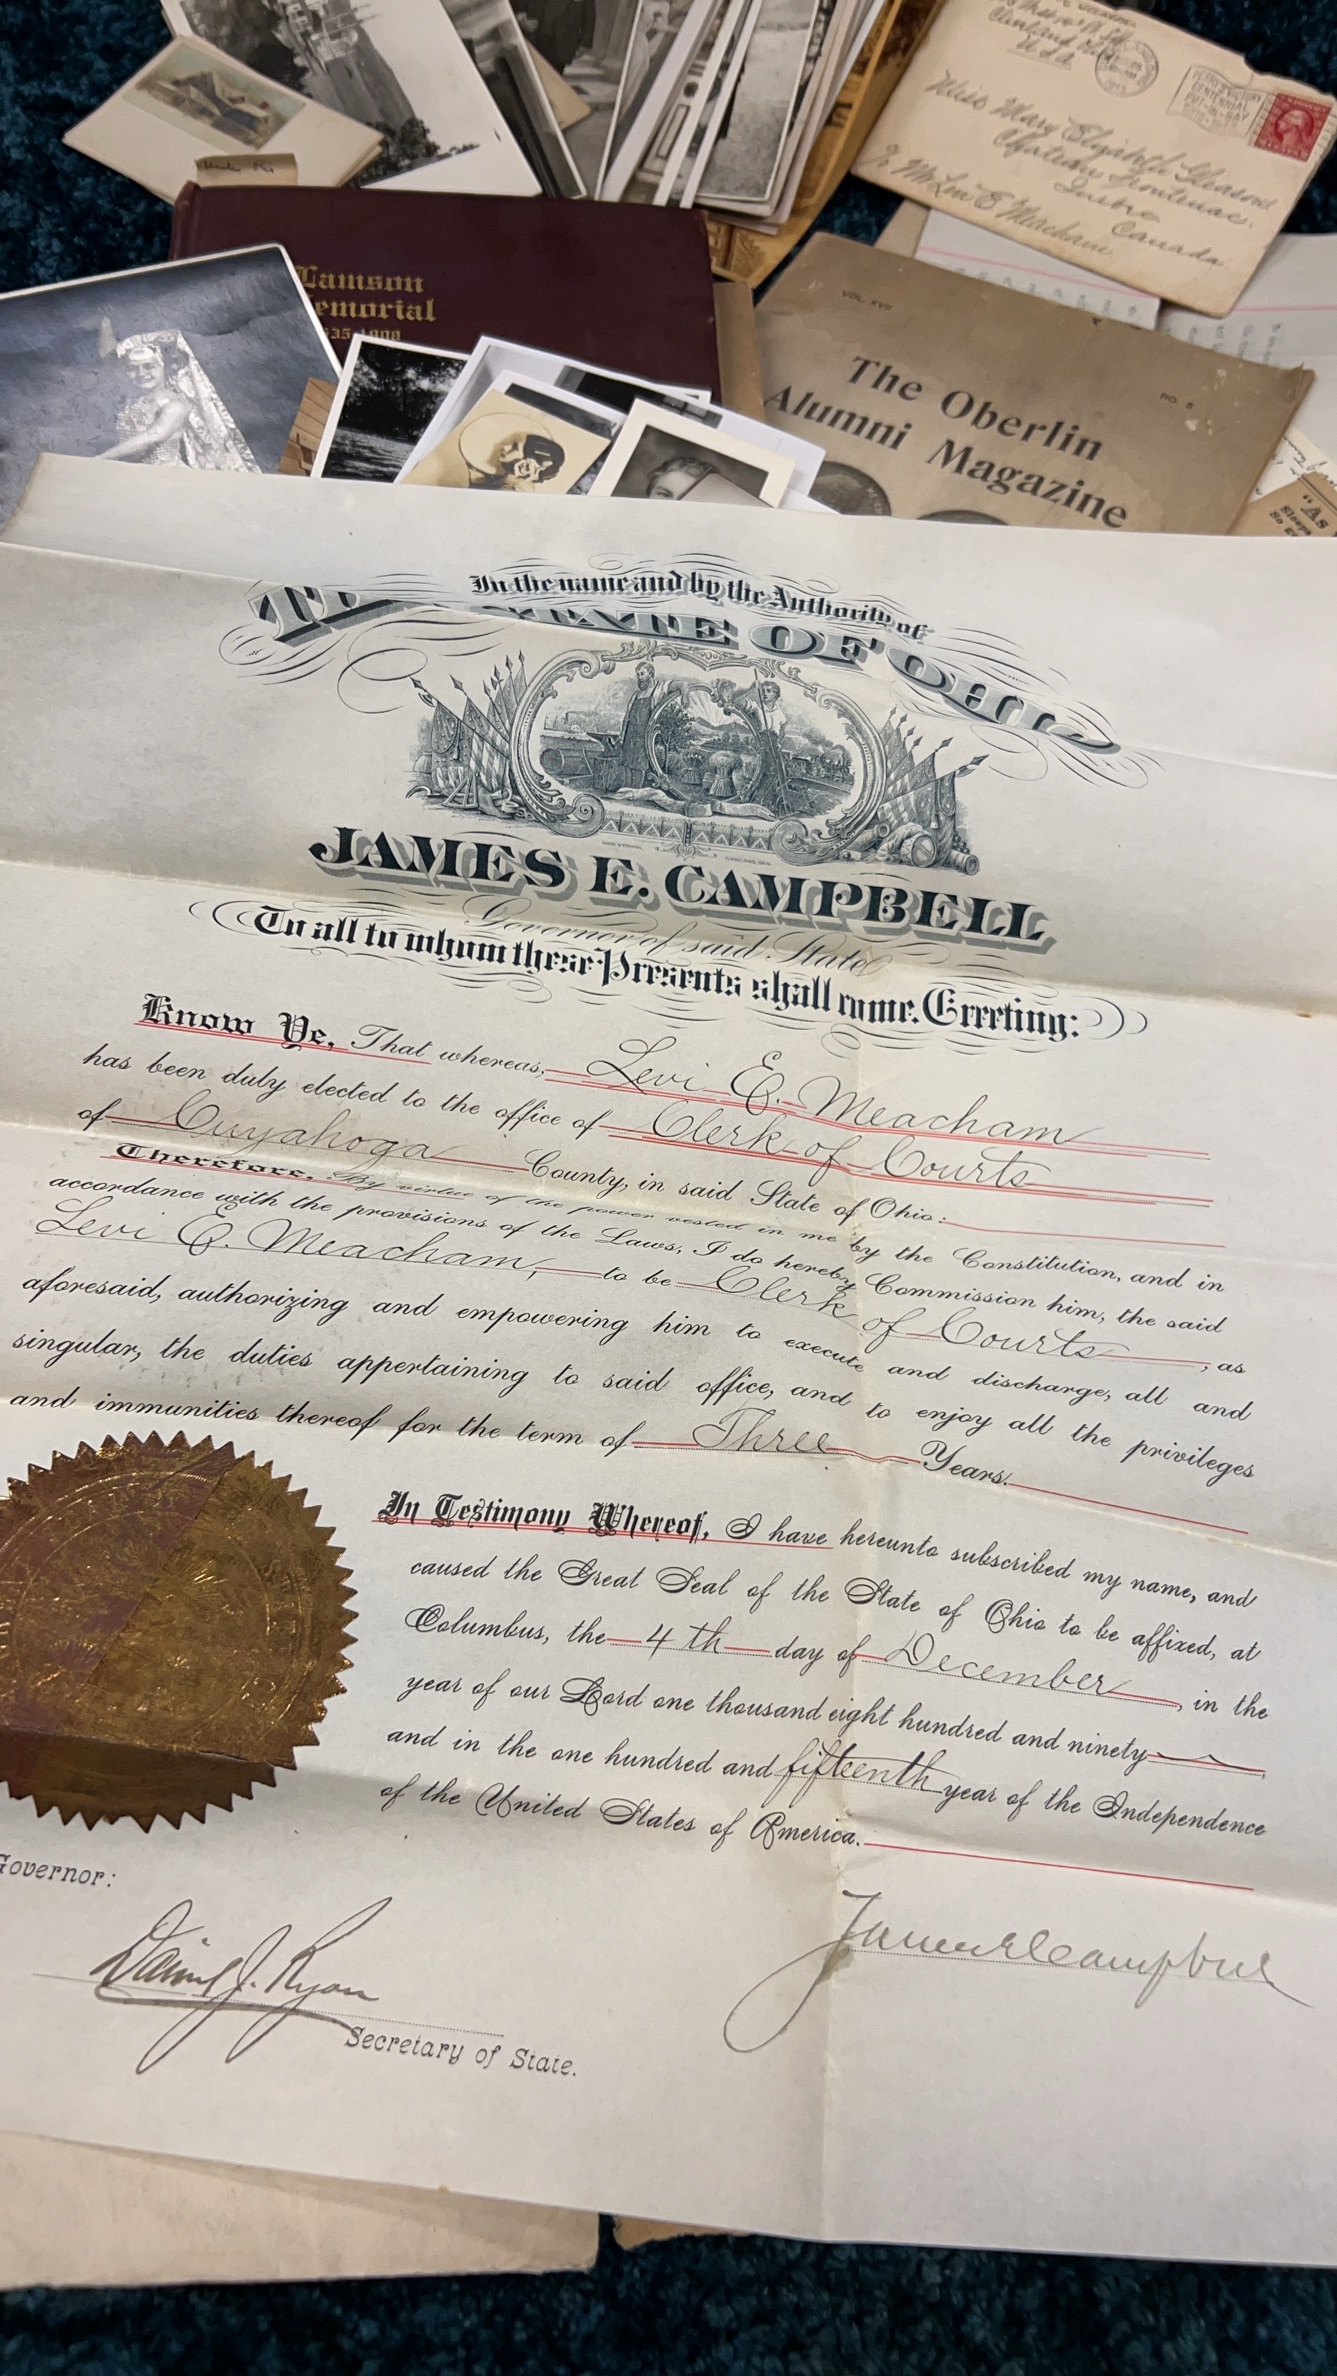 Miss Mary Elizabeth Gleason
Chateau Frontenac
Quebec
Canada.
c/o Mr Levi E Meacham.
PERRY VICTORY
CENTENNIAL
PUT-IN-BAY
Lamson
emorial
35-1908
VOL. XVII
NO. 5
The Oberlin
Alumni Magazine
"AS
Sleeps
In the name and by the Authority of
THE STATE OF OHIO
JAMES E. CAMPBELL
Governor of said State
To all to whom these Presents shall come, Greeting:
Know Ye, That whereas, Levi E. Meacham
has been duly elected to the office of Clerk of Courts
of Cuyahoga County, in said State of Ohio:
Therefore, By virtue of the power vested in me by the Constitution, and in
accordance with the provisions of the Laws, I do hereby Commission him, the said
Levi E. Meacham, to be Clerk of Courts, as
aforesaid, authorizing and empowering him to execute and discharge, all and
singular, the duties appertaining to said office, and to enjoy all the privileges
and immunities thereof for the term of Three Years.
In Testimony Whereof, I have hereunto subscribed my name, and
caused the Great Seal of the State of Ohio to be affixed, at
Columbus, the 4th day of December, in the
year of our Lord one thousand eight hundred and ninety
and in the one hundred and fifteenth year of the Independence
of the United States of America.
Governor:
James E Campbell
Daniel J. Ryan
Secretary of State.